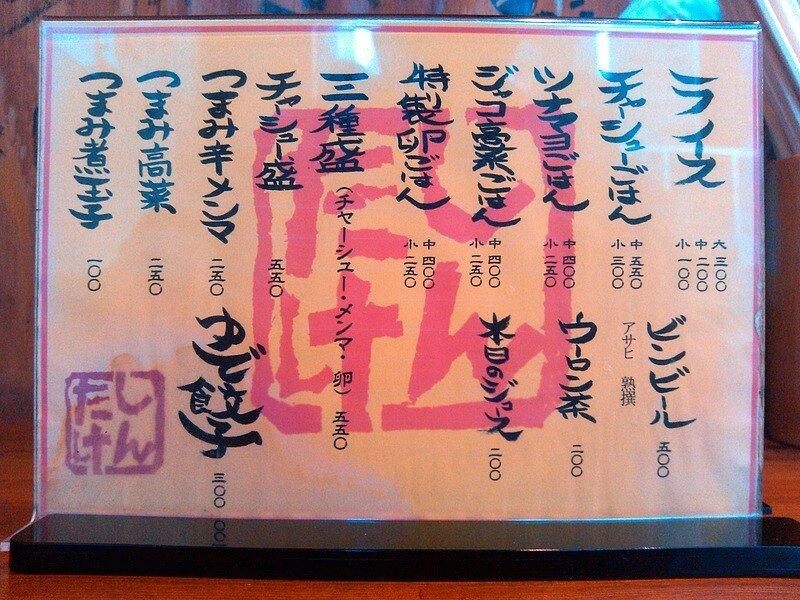 ライス
大 三〇〇
中 二〇〇
小 一〇〇
チャーシューごはん
中 五五〇
小 三〇〇
ツナマヨごはん
中 四〇〇
小 二五〇
ジャコ高菜ごはん
中 四〇〇
小 二五〇
特製卵ごはん
中 四〇〇
小 二五〇
三種盛（チャーシュー・メンマ・卵）五五〇
チャーシュー盛
五五〇
つまみ辛メンマ
二五〇
つまみ高菜
二五〇
つまみ煮玉子
一〇〇
ビンビール
アサヒ 熟撰
五〇〇
ウーロン茶
二〇〇
本日のジュース
二〇〇
ゆで餃子
三〇〇